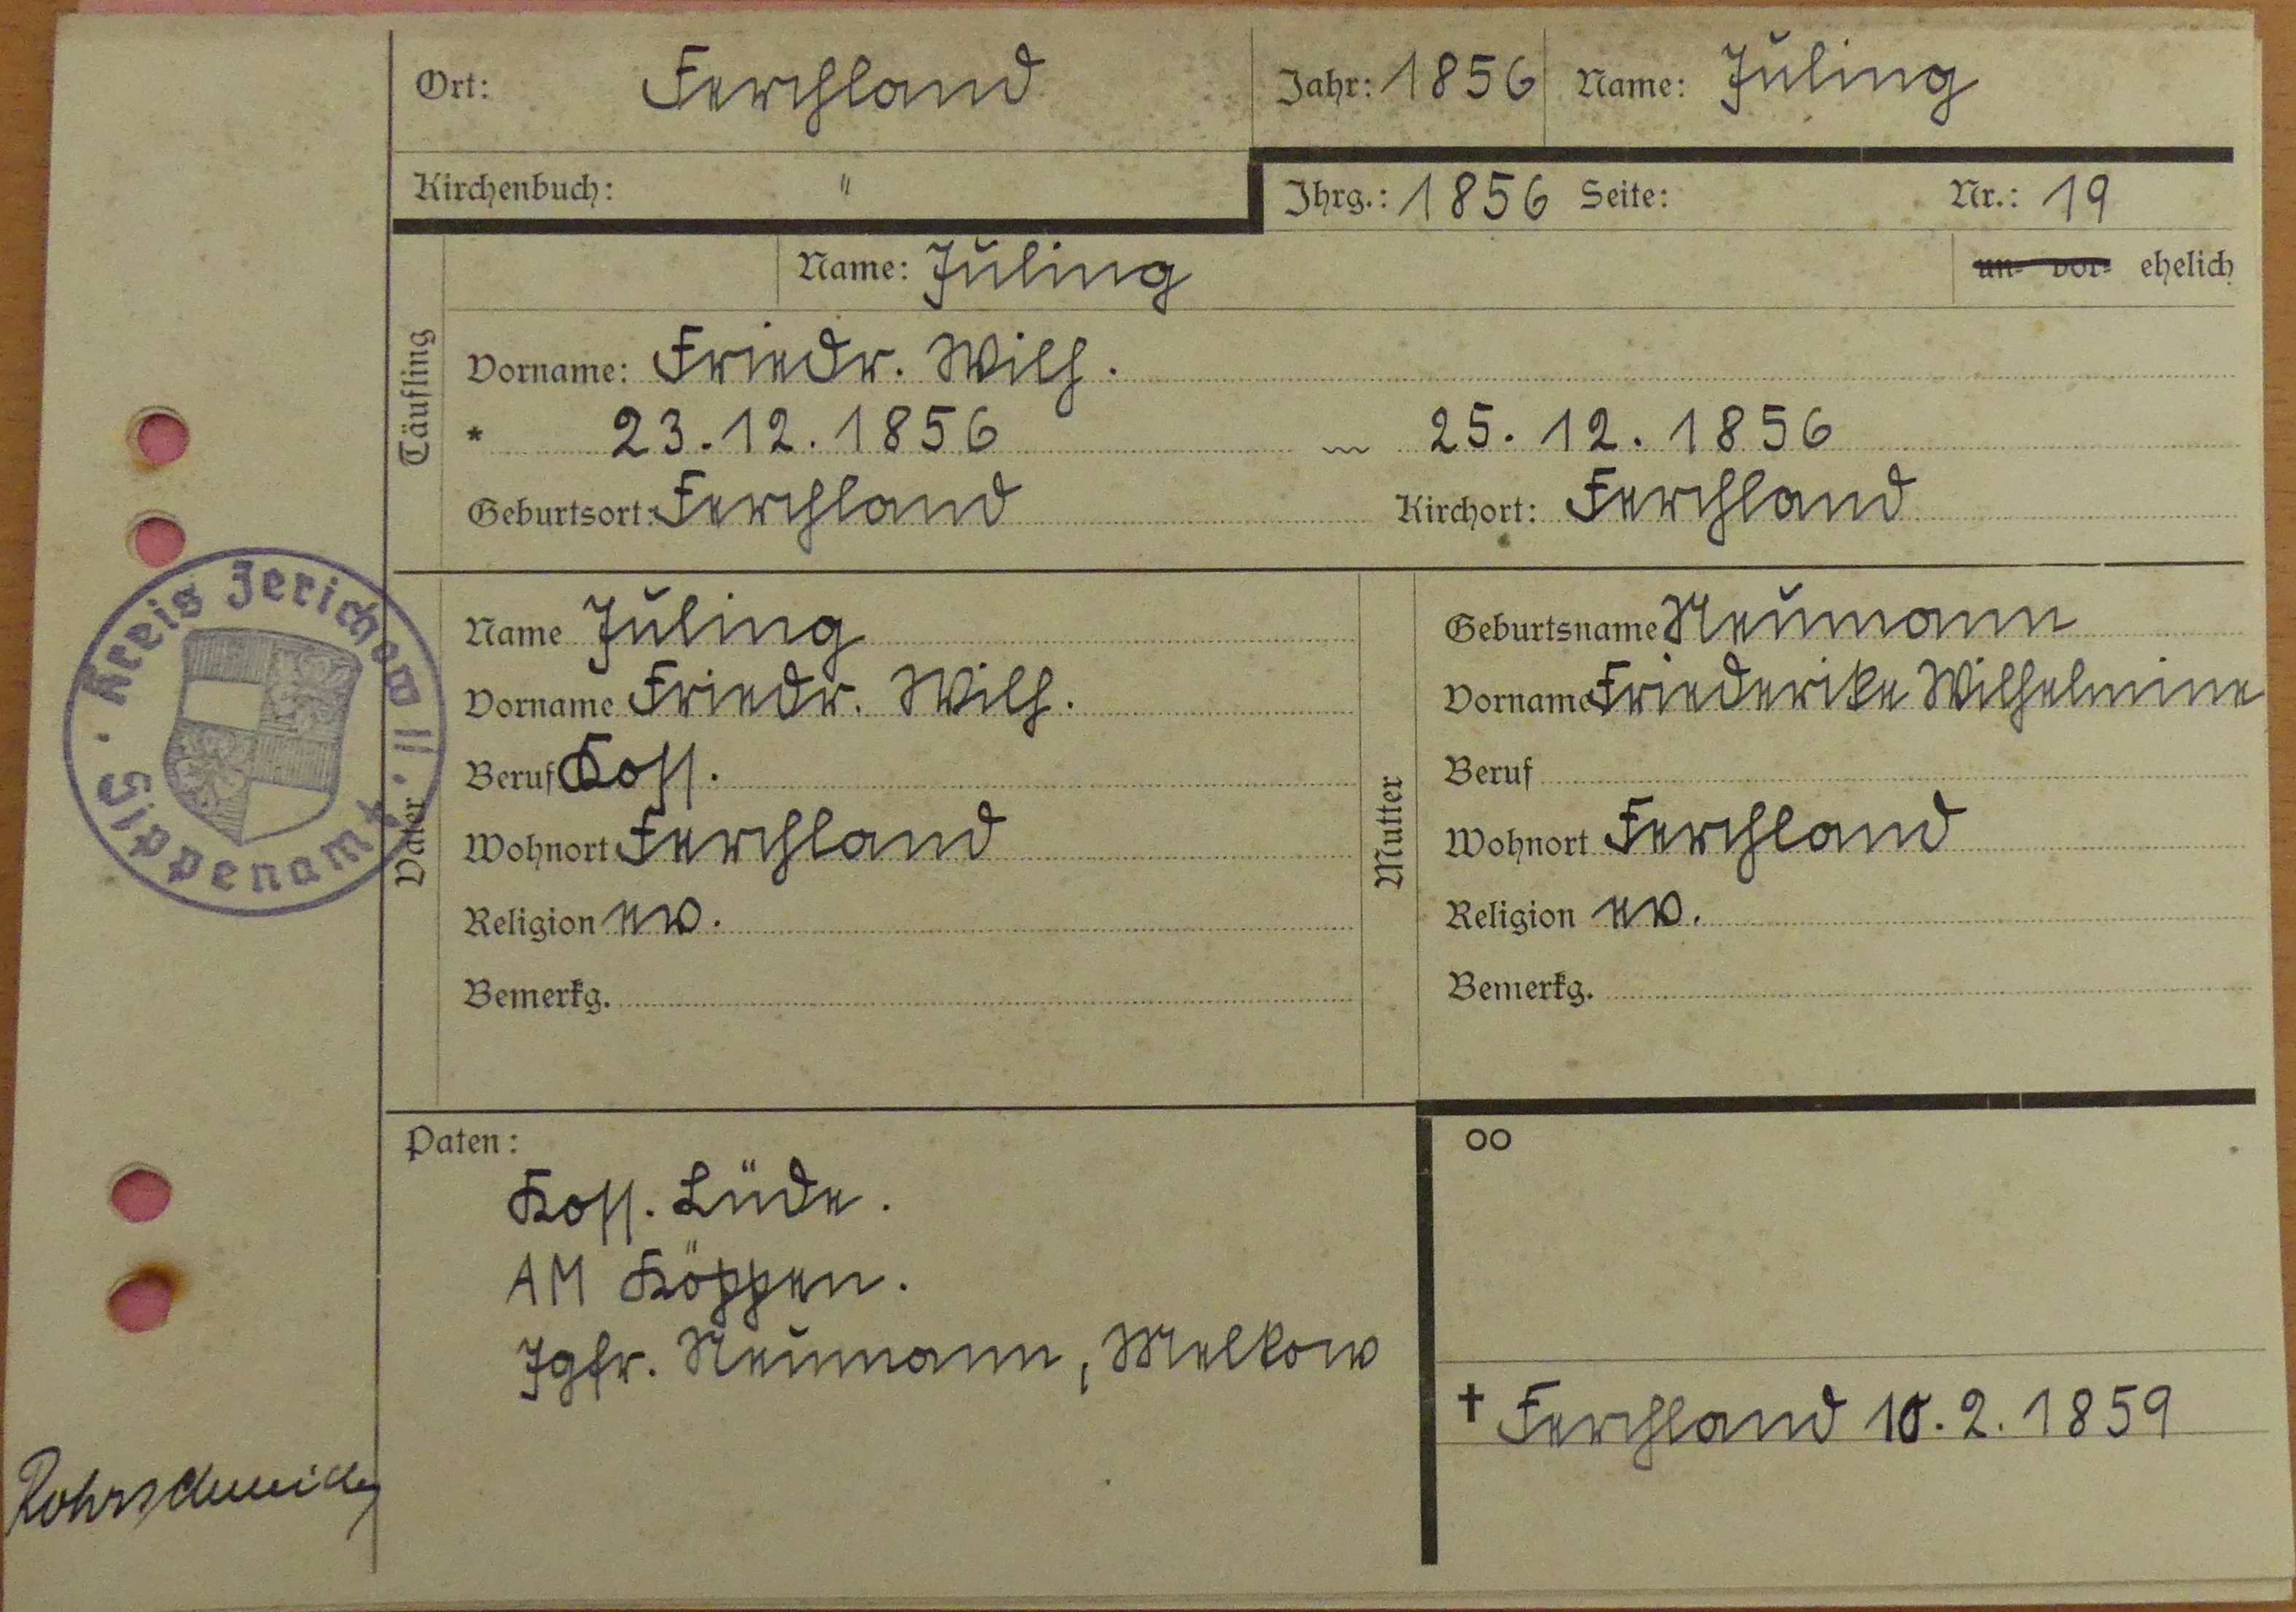 Ort: Ferchland Jahr: 1856 Name: Juling
Kirchenbuch: " Jhrg.: 1856 Seite: Nr.: 19
Täufling
Name: Juling un- vor- ehelich
Vorname: Friedr. Wilh.
* 23.12.1856 ~ 25.12.1856
Geburtsort: Ferchland Kirchort: Ferchland
Vater
Name Juling
Vorname Friedr. Wilh.
Beruf Koss.
Wohnort Ferchland
Religion ev.
Bemerkg.
Mutter
Geburtsname Neumann
Vorname Friederike Wilhelmine
Beruf
Wohnort Ferchland
Religion ev.
Bemerkg.
Paten:
Koss. Lüde.
AM Köppen.
Jgfr. Neumann, Melkow
oo
† Ferchland 10.2.1859
Kreis Jerichow II.
Sippenamt
Rohrschneider